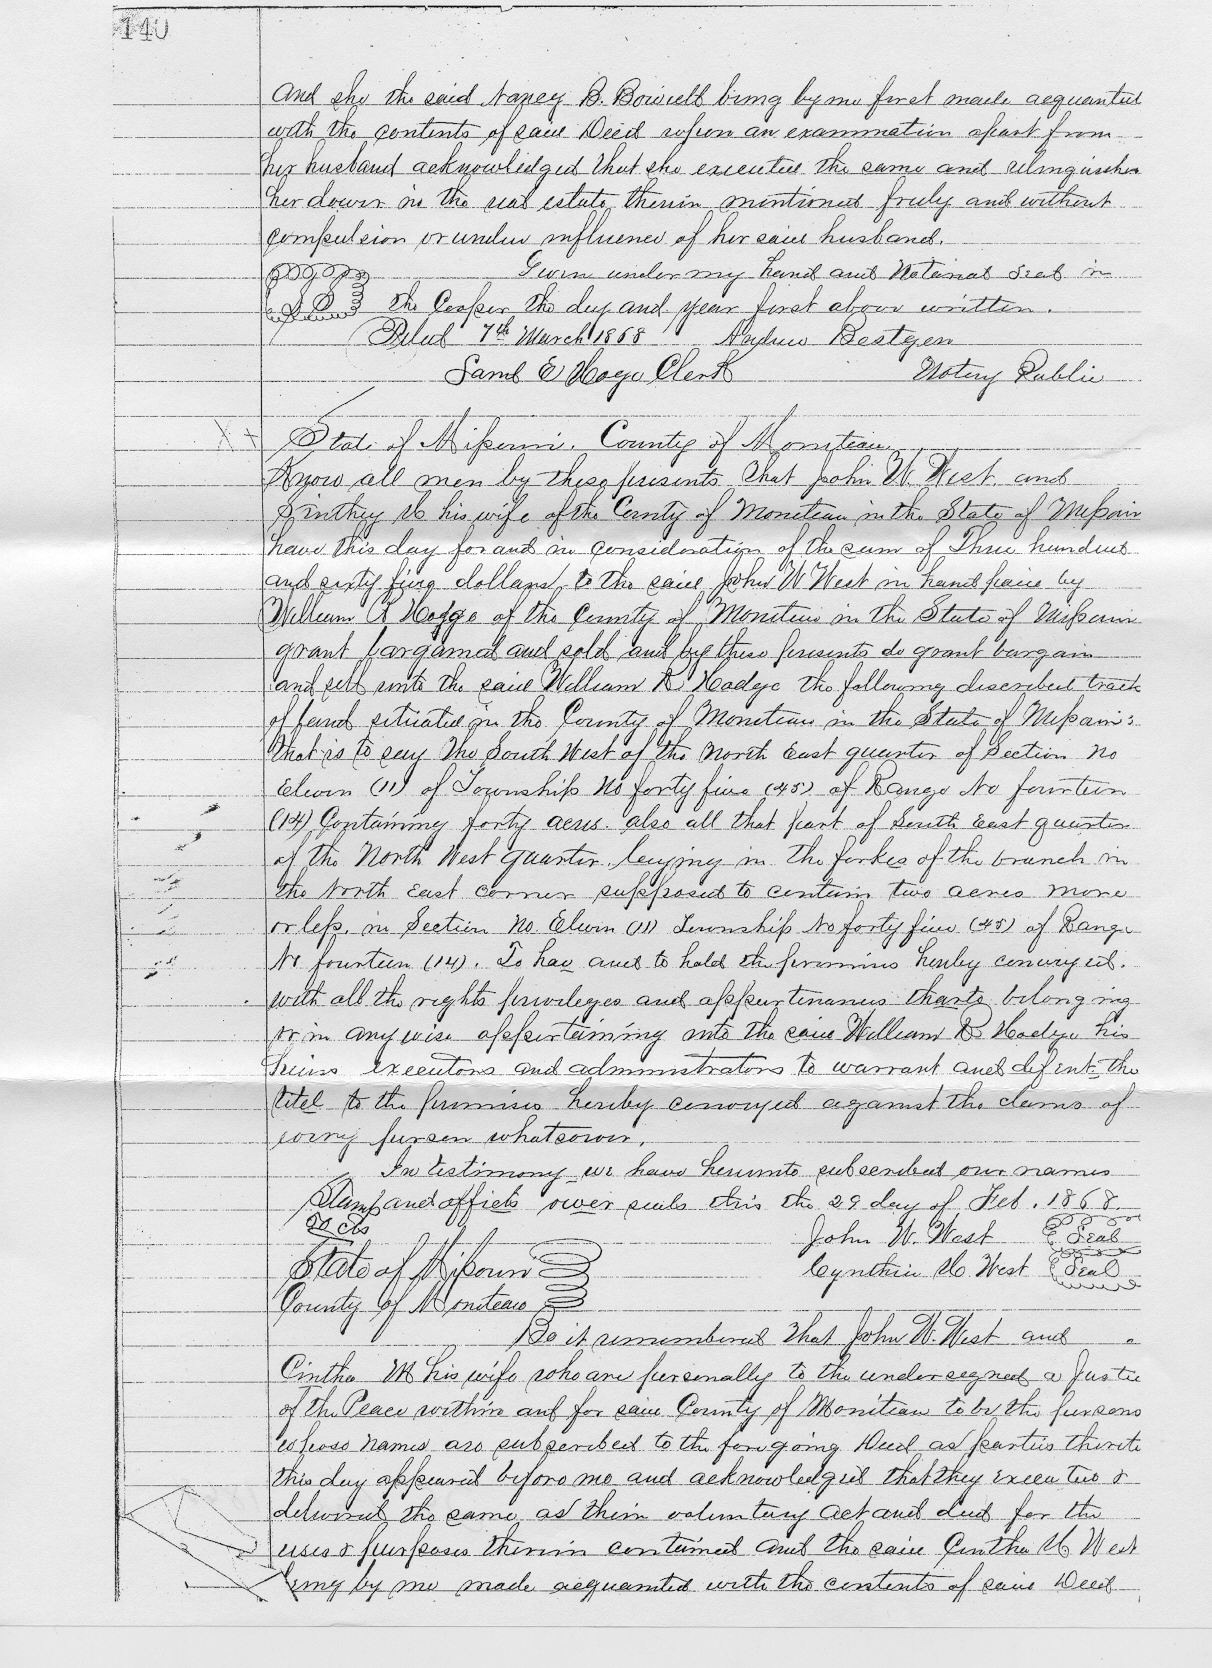 140
And she the said Nancy B. Bowell being by me first made acquanted
with the contents of said Deed upon an examination apart from
her husband acknowledged that she executed the same and relinquishes
her dower in the real estate therein mentioned freely and without
compulsion or undue influence of her said husband.
Given under my hand and Notarial Seal in
L S the Cooper the day and year first above written.
Filed 7th March 1868 Andrew Bestgen
Saml E Hoge Clerk Notary Public
State of Missouri. County of Moniteau
Know all men by these presents that John W. West and
Sinthey his wife of the County of Moniteau in the State of Missouri
have this day for and in consideration of the sum of Three hundred
and sixty five dollars, to the said John W West in hand paid by
William R Hodge of the County of Moniteau in the State of Missouri
grant bargained and sold and by these presents do grant bargain
and sell unto the said William R Hodge the following described track
of land situated in the County of Moniteau in the State of Missouri:
that is to say The South West of the North East quarter of Section No
Eleven (11) of Township No forty five (45) of Range No fourteen
(14) Containing forty acres. also all that part of South East quarter
of the North West quarter. laying in the forkes of the branch in
the North East corner supposed to contain two acres more
or less, in Section No. Eleven (11) Township No forty five (45) of Range
No fourteen (14). To have and to hold the premises hereby conveyed.
with all the rights privileges and appurtenances tharto belonging
or in any wise appertaining unto the said William R Hodge his
heirs executors and administrators to warrant and defent the
titel to the premises hereby conveyed against the claims of
every person whatsoever.
In testimony we have hereunto subscribed our names
Stamp and affict ower seals this the 29 day of Feb. 1868.
50 cts John W. West Seal
State of Missouri Cynthia West Seal
County of Moniteau
Be it remembered that John W. West and
Cintha M his wife who are personally to the undersegned a Justice
of the Peace within and for said County of Moniteau to be the persons
whose names are subscribed to the foregoing Deed as parties thereto
this day appeared before me and acknowledged that they executed &
delivered the same as their voluntary act and deed for the
uses & purposes therein contained and the said Cintha M West
being by me made acquanted with the contents of said Deed